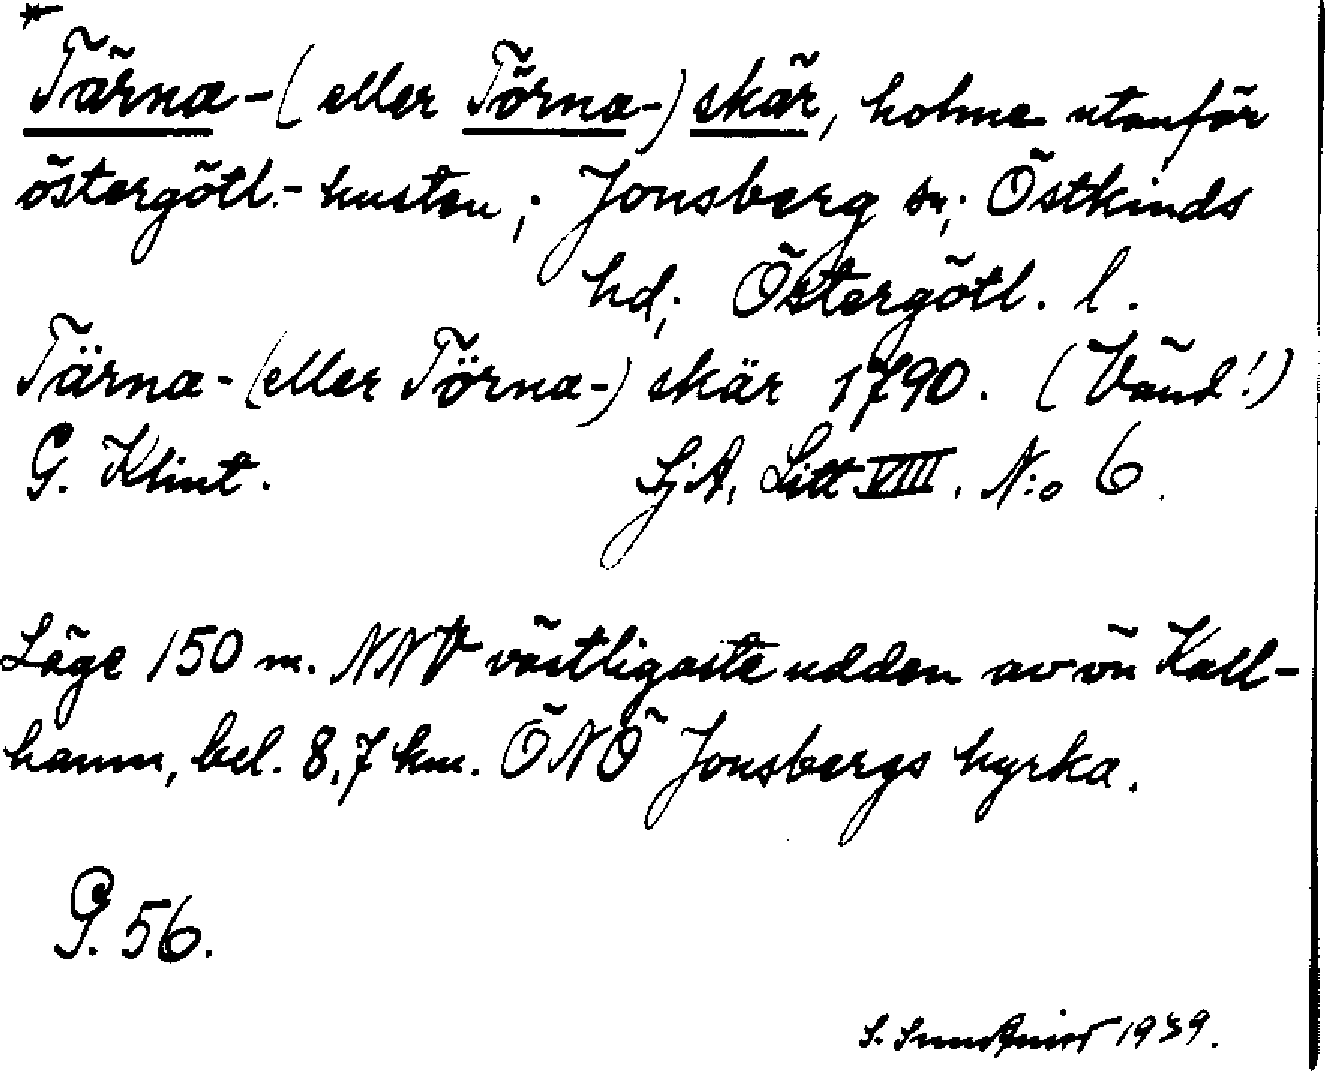 *
Tärna-(eller Törna-)skär, holme utanför
östergötl.-kusten; Jonsberg sn; Östkinds
hd; Östergötl. l.
Tärna-(eller Törna-)skär 1790. (Vänd!)
G. Klint. SjA, Litt VIII. N:o 6.
Läge 150 m. NNV västligaste udden av ön Kall-
hamn, bel. 8,7 km. ÖNÖ Jonsbergs kyrka.
G. 56.
S. 1939.